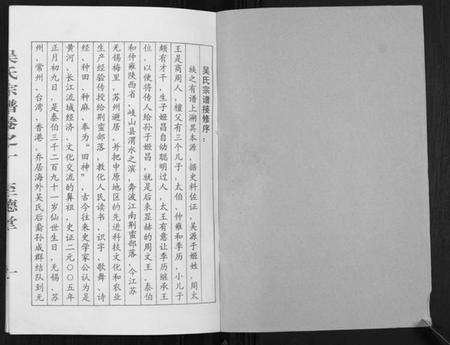 吴氏宗谱接修序：
族之有谱上溯其本源，据史料佐证，吴源于姬姓，周太
王是商周人，檀父有三个儿子，太伯、仲雍和季历，小儿子
颇有才干，生子姬昌自幼聪明过人，太王有意让季历继承王
位，以便将传人给孙子姬昌，就是后来显赫的周文王，泰伯
和仲雍陕西省，岐山县渭水之滨，奔波江南荆蛮部落，今江苏
无锡梅里，苏州避居，并把中原地区的先进科技文化和农业
生产经验传授给荆蛮部落，教化人民读书，识字、歌舞、诗
经，种田、种麻，奉为“田神”，古今往来史学家公认为是
黄河、长江流域经济、文化交流的鼻祖，史证二元○○五年
正月初九日，是泰伯三千二百九十一岁仙世生日，无锡、苏
州、常州、台湾、香港，乔居海外吴氏后裔孙成群结队到无
吴氏宗谱卷之一 至德堂 一